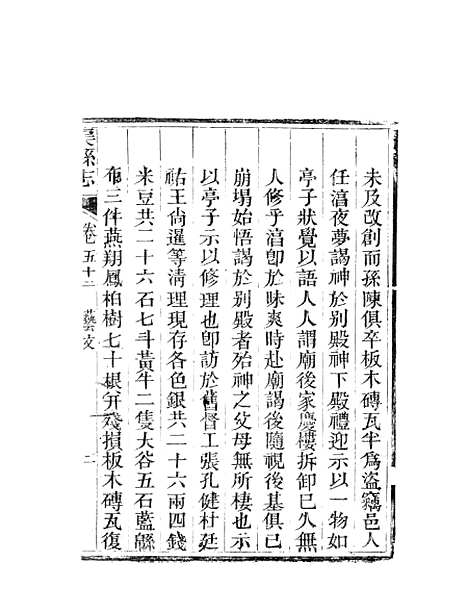 未及改創而孫陳俱卒板木磚瓦半為盜竊邑人
任涫夜夢謁神於別殿神下殿禮迎示以一物如
亭子狀覺以語人人謂廟後家慶樓拆卸已久無
人修乎涫卽於昧爽時赴廟謁後隨視後基俱已
崩塌始悟謁於別殿者殆神之父母無所棲也示
以亭子示以修理也卽訪於舊督工張孔健杜廷
祐王尙暹等淸理現存各色銀共二十六兩四錢
米豆共二十六石七斗黃牛二隻大谷五石藍緜
布三件燕翔鳳柏樹七十根幷殘損板木磚瓦復
縣志
卷五十二
藝文
二